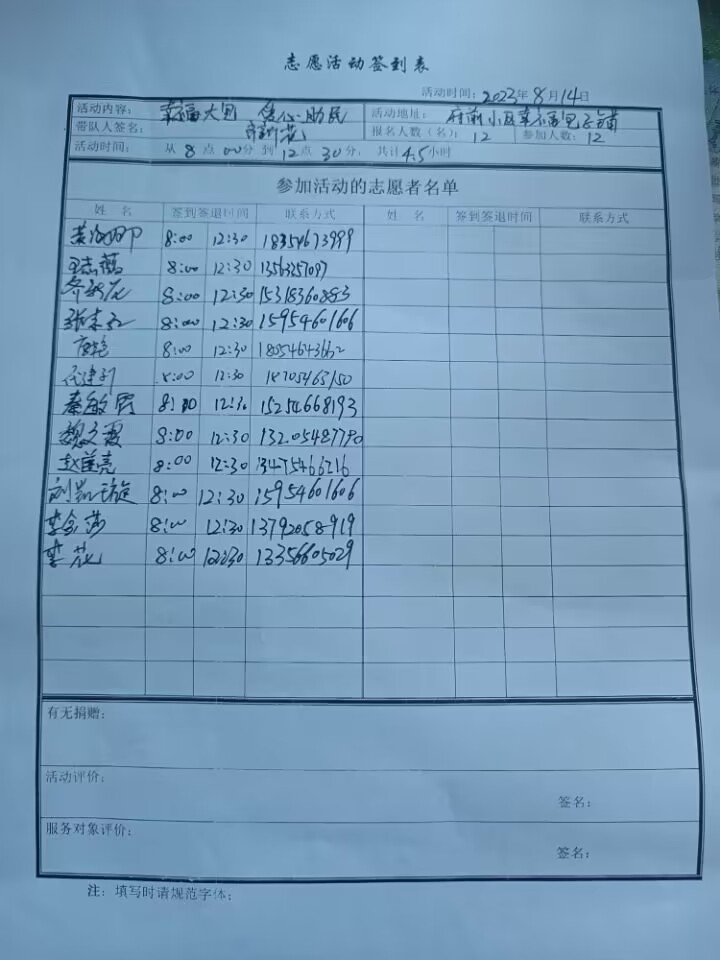 志愿活动签到表
活动时间：2023年8月14日
活动内容：幸福大包 爱心助民 活动地址：府前小区幸福包子铺
带队人签名： 报名人数（名）：12 参加人数：12
活动时间： 从 8 点 00分 到 12点 30分，共计4.5小时
参加活动的志愿者名单
姓 名 签到签退时间 联系方式 姓 名 签到签退时间 联系方式
8:00 12:30 18354673999
王志燕 8:00 12:30 13563257097
8:00 12:30 15318360883
8:00 12:30 15954601606
8:00 12:30
8:00 12:30 18705463150
秦敏 8:00 12:30 15254668193
魏文霞 8:00 12:30 13205487790
赵佳亮 8:00 12:30 13475466216
刘凯旋 8:00 12:30 15954601606
李金莎 8:00 12:30 13792058919
李花 8:00 12:30 13356605029
有无捐赠：
活动评价：
签名：
服务对象评价：
签名：
注：填写时请规范字体；